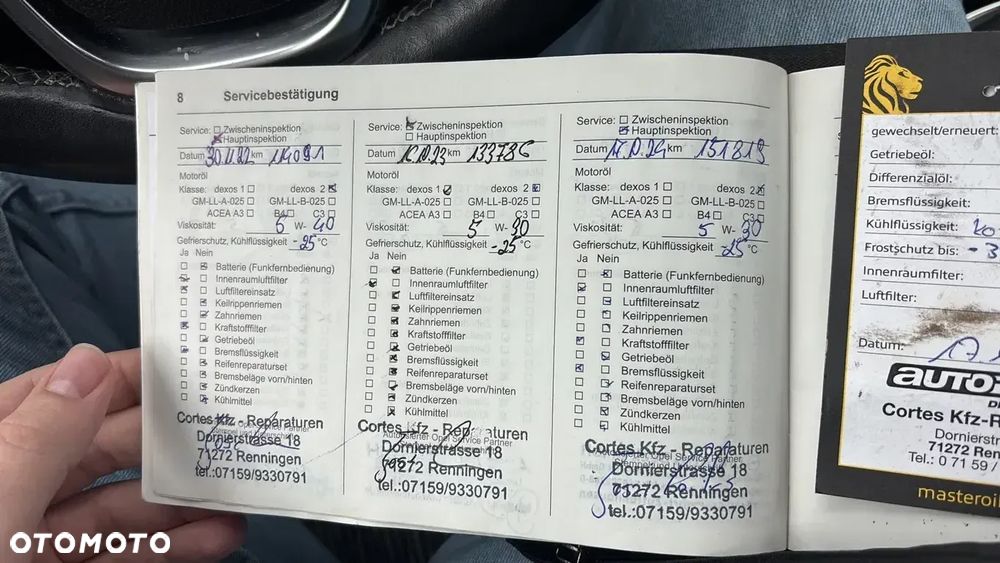 8 Servicebestätigung
Service: Zwischeninspektion
Hauptinspektion
Datum 30.11.22 km 114091
Motoröl
Klasse: dexos 1 dexos 2
GM-LL-A-025 GM-LL-B-025
ACEA A3 B4 C3
Viskosität: 5 W- 40
Gefrierschutz, Kühlflüssigkeit -25 °C
Ja Nein
Batterie (Funkfernbedienung)
Innenraumluftfilter
Luftfiltereinsatz
Keilrippenriemen
Zahnriemen
Kraftstofffilter
Getriebeöl
Bremsflüssigkeit
Reifenreparaturset
Bremsbeläge vorn/hinten
Zündkerzen
Kühlmittel
Cortes Kfz - Reparaturen
Dornierstrasse 18
71272 Renningen
tel.:07159/9330791
Service: Zwischeninspektion
Hauptinspektion
Datum 16.10.23 km 133786
Motoröl
Klasse: dexos 1 dexos 2
GM-LL-A-025 GM-LL-B-025
ACEA A3 B4 C3
Viskosität: 5 W- 30
Gefrierschutz, Kühlflüssigkeit -25 °C
Ja Nein
Batterie (Funkfernbedienung)
Innenraumluftfilter
Luftfiltereinsatz
Keilrippenriemen
Zahnriemen
Kraftstofffilter
Getriebeöl
Bremsflüssigkeit
Reifenreparaturset
Bremsbeläge vorn/hinten
Zündkerzen
Kühlmittel
Cortes Kfz - Reparaturen
Autorisierter Opel Service Partner
Dornierstrasse 18
71272 Renningen
tel.:07159/9330791
Service: Zwischeninspektion
Hauptinspektion
Datum 17.10.24 km 151819
Motoröl
Klasse: dexos 1 dexos 2
GM-LL-A-025 GM-LL-B-025
ACEA A3 B4 C3
Viskosität: 5 W- 30
Gefrierschutz, Kühlflüssigkeit -25 °C
Ja Nein
Batterie (Funkfernbedienung)
Innenraumluftfilter
Luftfiltereinsatz
Keilrippenriemen
Zahnriemen
Kraftstofffilter
Getriebeöl
Bremsflüssigkeit
Reifenreparaturset
Bremsbeläge vorn/hinten
Zündkerzen
Kühlmittel
Cortes Kfz - Reparaturen
Dornierstrasse 18
71272 Renningen
tel.:07159/9330791
gewechselt/erneuert:
Getriebeöl:
Differenzialöl:
Bremsflüssigkeit:
Kühlflüssigkeit:
Frostschutz bis: - 3
Innenraumfilter:
Luftfilter:
Datum:
Cortes Kfz-R
Dornierst
71272 Ren
Tel.: 0 71 59 /
masteroil
OTOMOTO